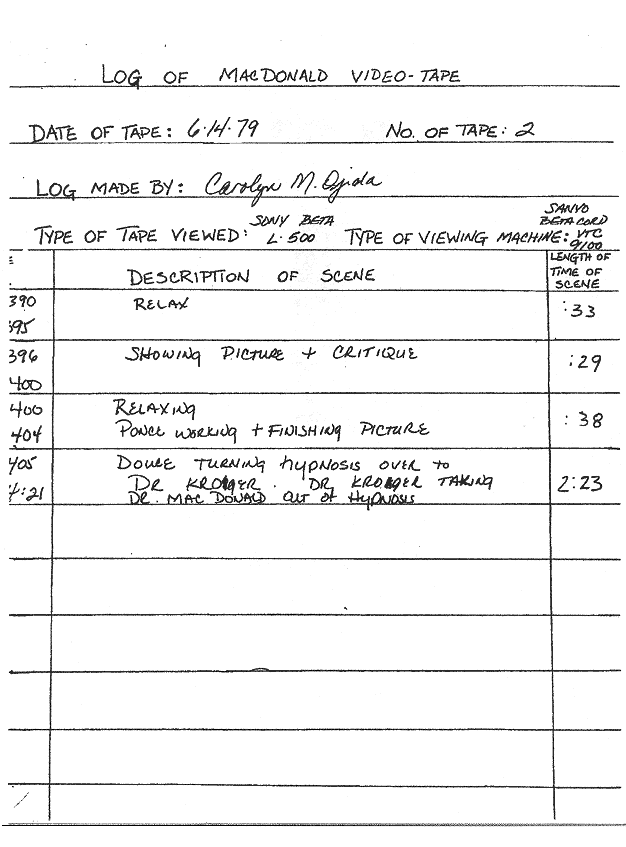 LOG OF MACDONALD VIDEO-TAPE
DATE OF TAPE: 6·14·79 NO. OF TAPE: 2
LOG MADE BY: Carolyn M. Ojida
TYPE OF TAPE VIEWED: SONY BETA L-500 TYPE OF VIEWING MACHINE: SANYO BETA CORD VTC 9100
DESCRIPTION OF SCENE LENGTH OF TIME OF SCENE
390 RELAX :33
395
396 SHOWING PICTURE + CRITIQUE :29
400
400 RELAXING :38
404 PONCE WORKING + FINISHING PICTURE
405 DOUCE TURNING HYPNOSIS OVER TO
4:21 DR KROGER. DR. KROGER TAKING 2:23
DR. MAC DONALD OUT OF HYPNOSIS